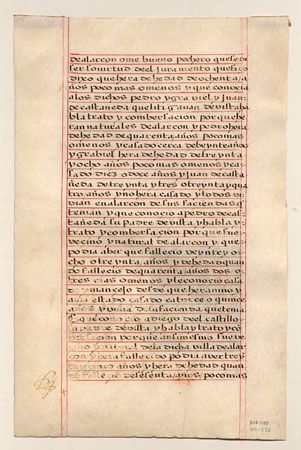 de alarcon ome bueno pechero que se di
ser so virtud de el juramento que fizo
dixo que hera de hedad de ochenta a
ños poco mas o menos y que conocia
a los dichos pedro y graviel y juan
de castañeda que litigavan de vista ha
bla trato y combersacion por que he
ran naturales de alarcon y pedro hera
de hedad de quarenta años poco mas
o menos y casado cerca de veynte años
y graviel hera de hedad de treynta
y ocho años poco mas o menos y ca
sado diez o doze años y juan de casta
ñeda de treynta y tres o treynta y qua
tro años y no hera casado y todos bi
bian en alarcon de sus faciendas q
tenian y que conocio a pedro de cas
tañeda su padre de vista y habla y tra
to y combersacion por que fue
vecino y natural de alarcon y que
podia aber que fallecio veynte y o
cho o treynta años y de hedad quan
do fallecio de quarenta años dos o
tres mas o menos y le conocio casa
do y mancebo desde que heran niño y
casado catorce o quince
años y vivia de su facienda que tenia
que conocio a diego del castillo
su padre de vista y habla y trato y co
versacion por que ansimesmo fue ve
cino y natural de la dicha villa de alar
con y hera fallecido podia aver treyn
ta y cinco años y hera de hedad quan
do fallecio de sesenta años poco mas